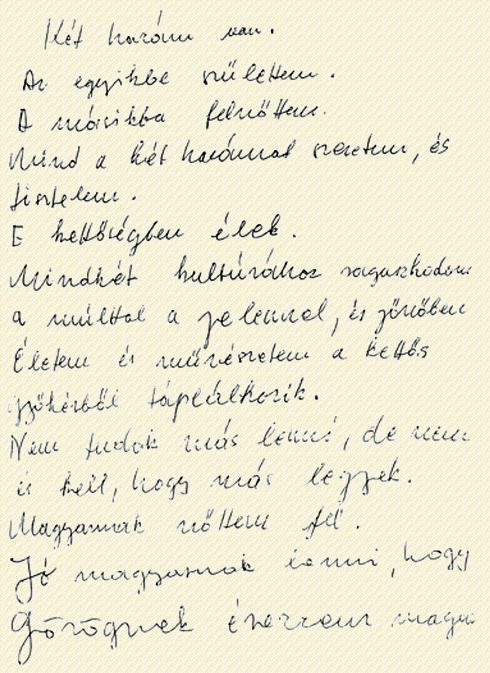 Két hazám van.
Az egyikbe születtem.
A másikba felnőttem.
Mind a két hazámat szeretem, és
tisztelem.
E kettőségben élek.
Mindkét kultúrához ragaszkodom
a múlttal a jelennel, és jövőben
Életem és művészetem a kettős
gyökérből táplálkozik.
Nem tudok más lenni, de nem
is kell, hogy más legyek.
Magyarnak nőttem fel.
Jó magyarnak lenni, hogy
Görögnek érezzem magam